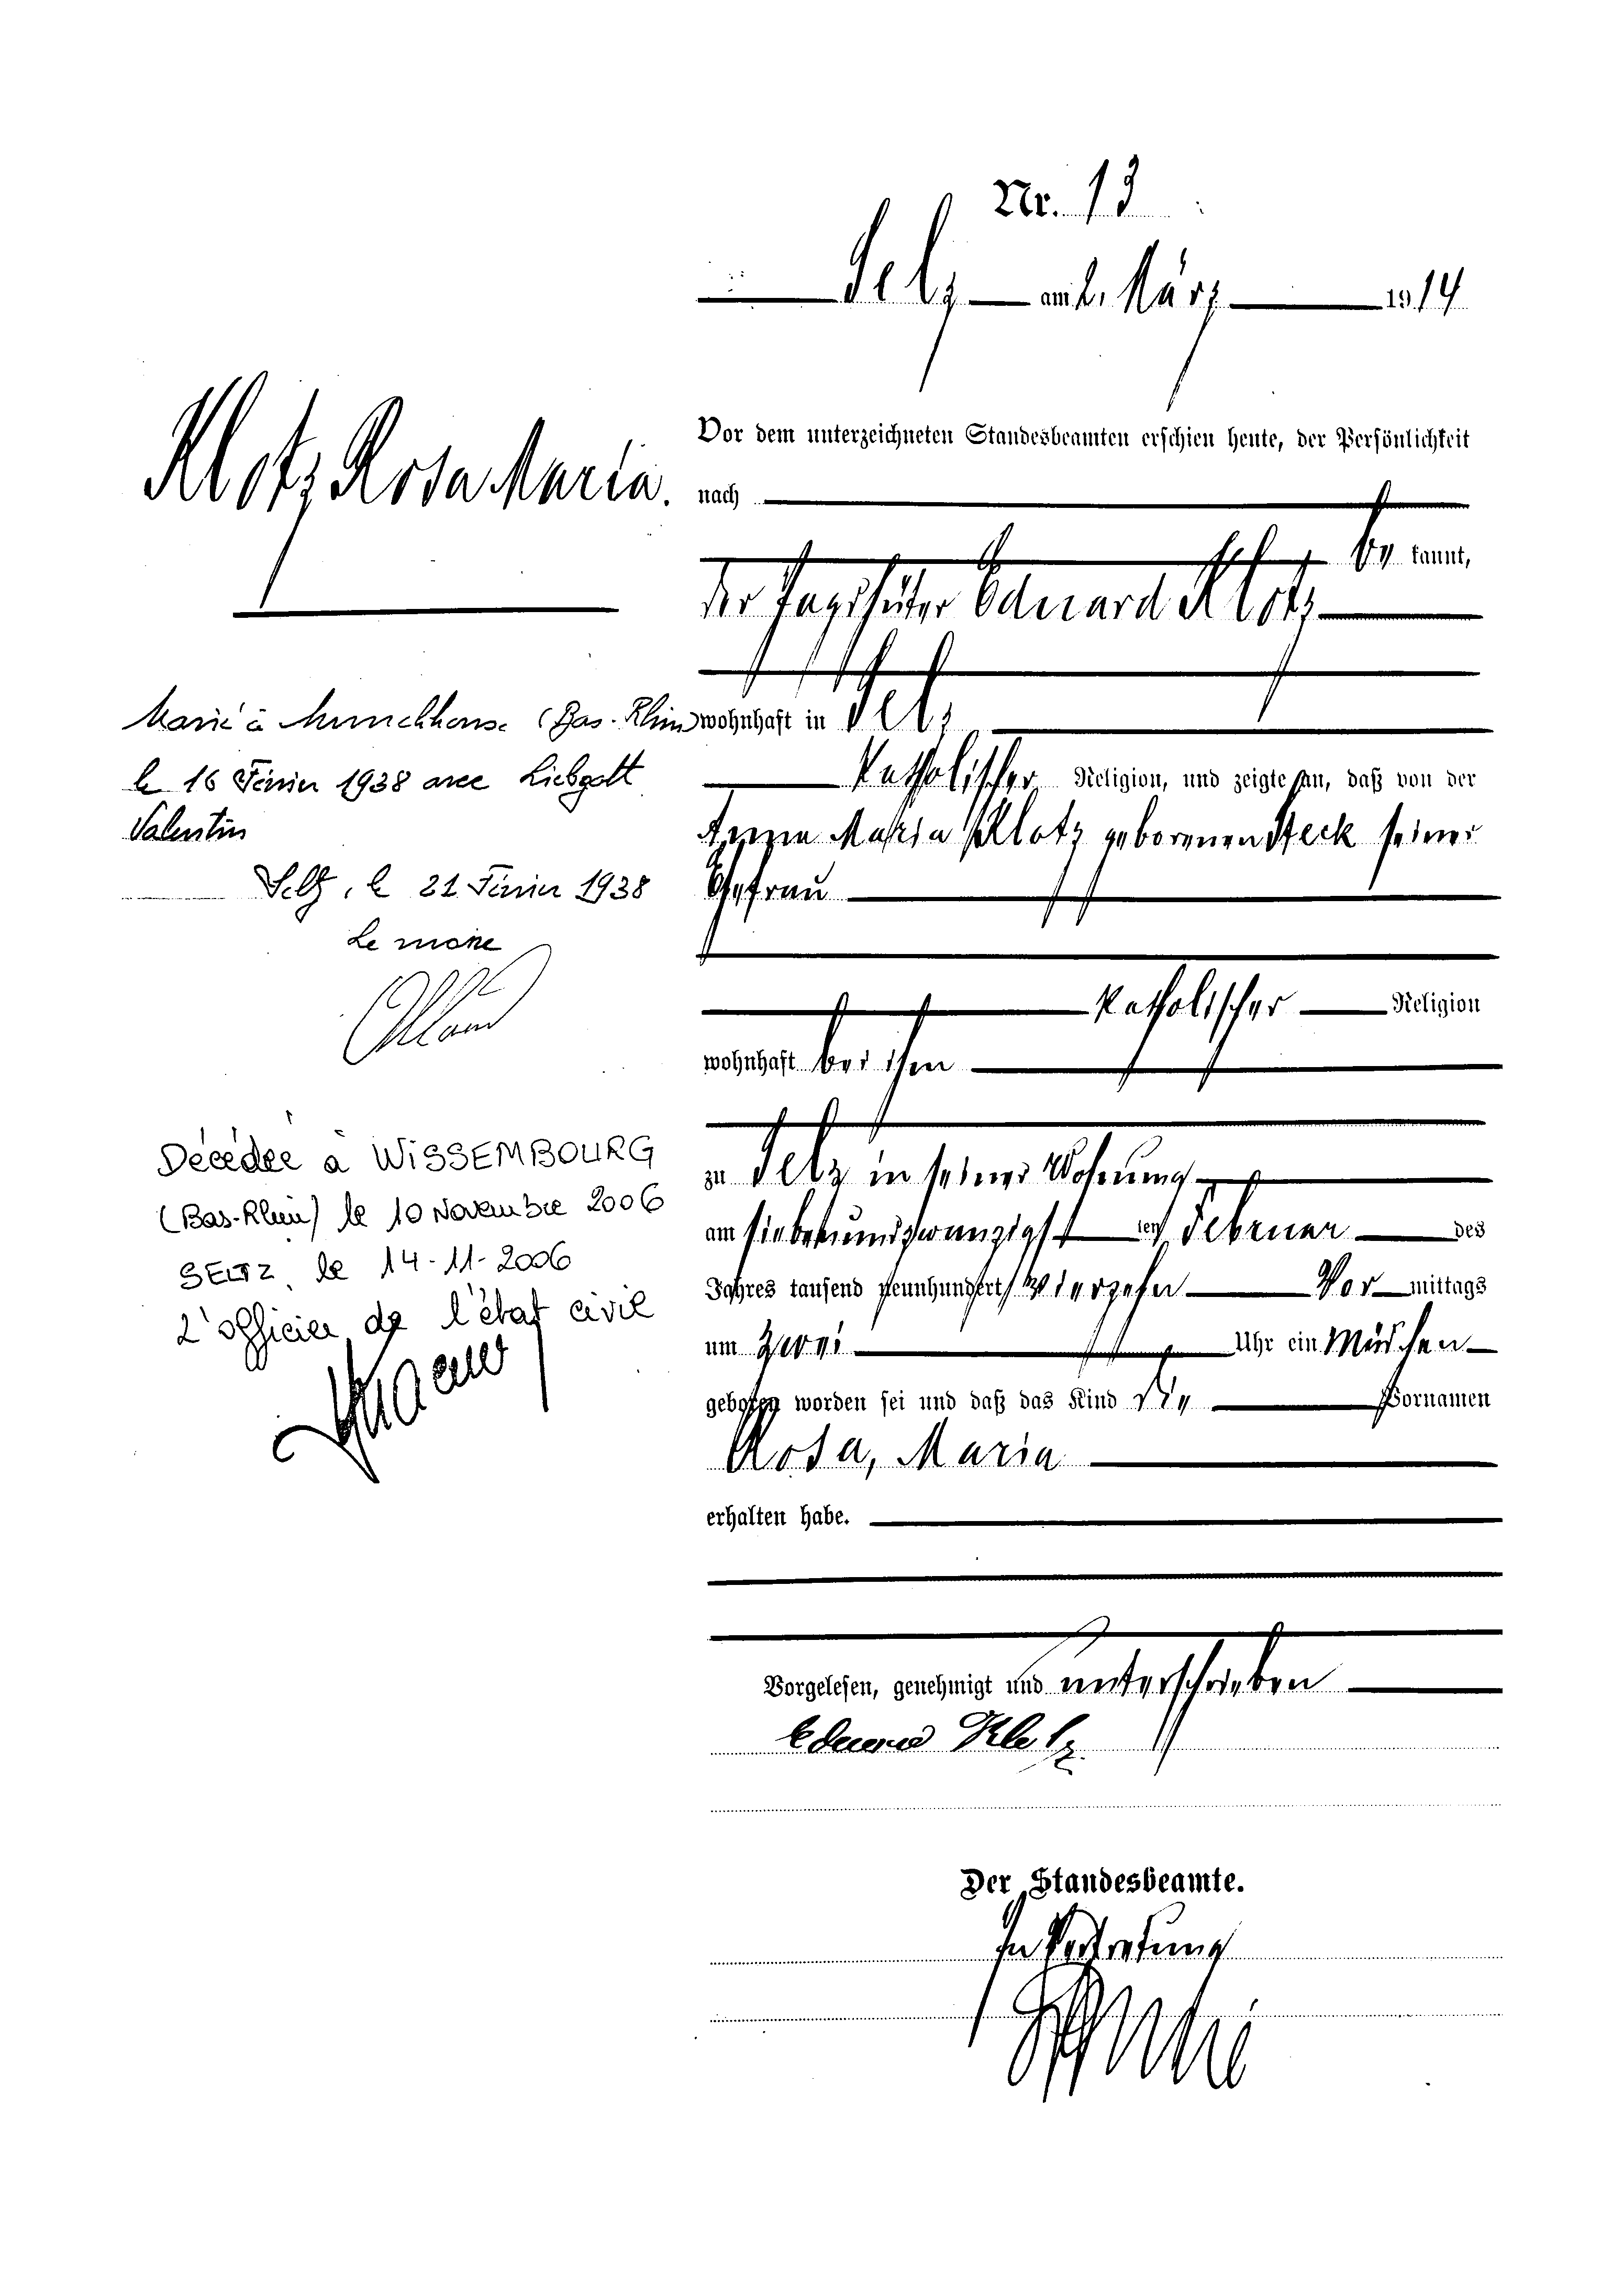 Nr. 13
Selz am 2. März 1914
Klotz Rosa Maria.
Vor dem unterzeichneten Standesbeamten erschien heute, der Persönlichkeit
nach
be kannt,
der Jagdhüter Eduard Klotz
wohnhaft in Selz
katholischer Religion, und zeigte an, daß von der
Anna Maria Klotz geborenen Steck seiner
Ehefrau
katholischer Religion
wohnhaft bei ihm
zu Selz in seiner Wohnung
am siebenundzwanzigst ten Februar des
Jahres tausend neunhundert vierzehn Vor mittags
um zwei Uhr ein Mädchen
geboren worden sei und daß das Kind die Vornamen
Rosa, Maria
erhalten habe.
Vorgelesen, genehmigt und unterschrieben
Eduard Klotz
Der Standesbeamte.
In Vertretung
Marié à Munchhouse (Bas-Rhin)
le 16 Février 1938 avec Liebgott
Valentin
Seltz, le 21 Février 1938
Le maire
Décédée à WISSEMBOURG
(Bas-Rhin) le 10 Novembre 2006
SELTZ, le 14-11-2006
L'officier de l'état civil